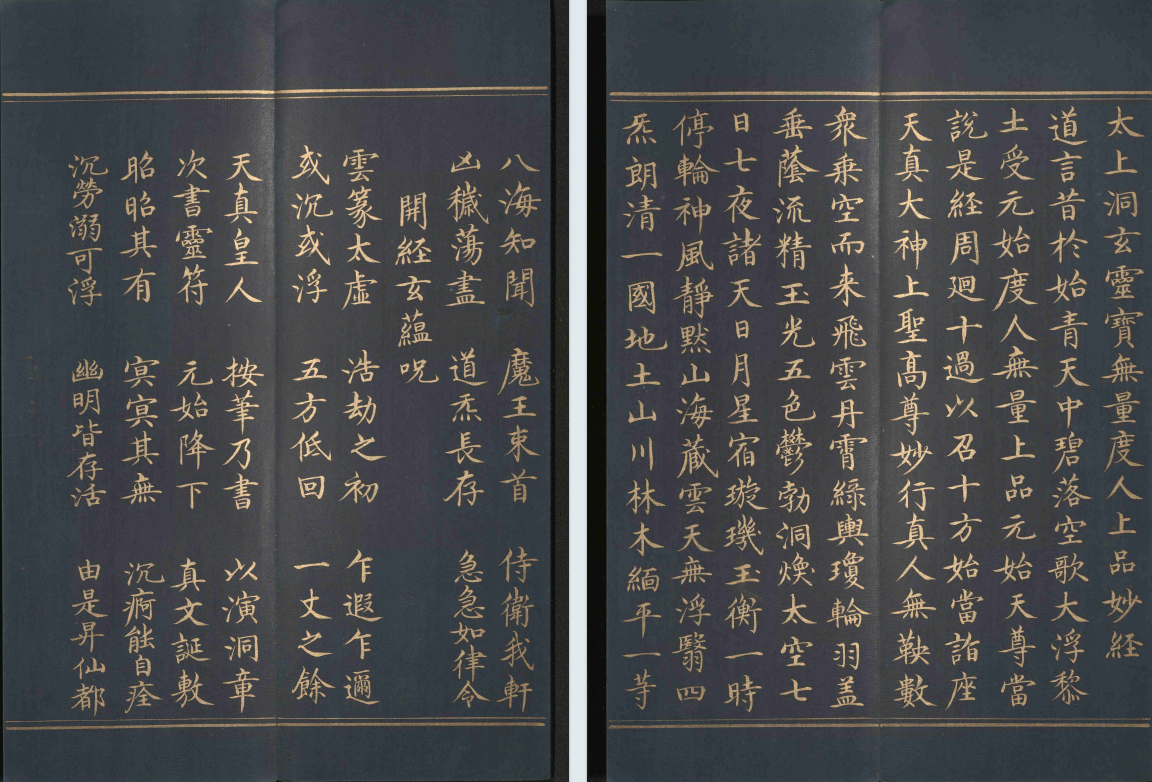 八海知聞 魔王束首 侍衛我軒
凶穢蕩盡 道炁長存 急急如律令
開経玄蘊呪
雲篆太虛 浩劫之初 乍遐乍邇
或沉或浮 五方低回 一丈之餘
天真皇人 按筆乃書 以演洞章
次書靈符 元始降下 真文誕敷
昭昭其有 冥冥其無 沉痾能自痊
沉勞溺可浮 幽明皆存活 由是昇仙都
太上洞玄靈寶無量度人上品妙経
道言昔於始青天中碧落空歌大浮黎
土受元始度人無量上品元始天尊當
說是経周廻十過以召十方始當詣座
天真大神上聖高尊妙行真人無鞅數
衆乗空而来飛雲丹霄綠輿瓊輪羽盖
垂蔭流精玉光五色鬱勃洞煥太空七
日七夜諸天日月星宿璇璣玉衡一時
停輪神風靜默山海藏雲天無浮翳四
炁朗清一國地土山川林木緬平一等